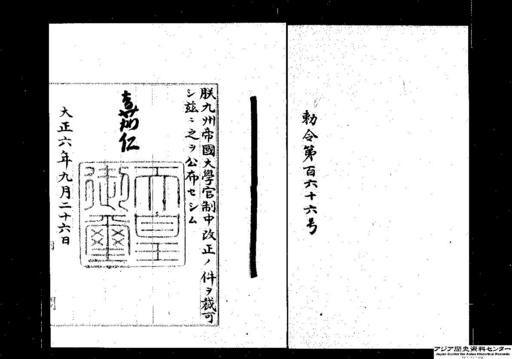 勅令第百六十六号
朕九州帝國大學官制中改正ノ件ヲ裁可
シ玆ニ之ヲ公布セシム
嘉仁
天皇
御璽
大正六年九月二十六日
アジア歴史資料センター
Japan Center for Asian Historical Records